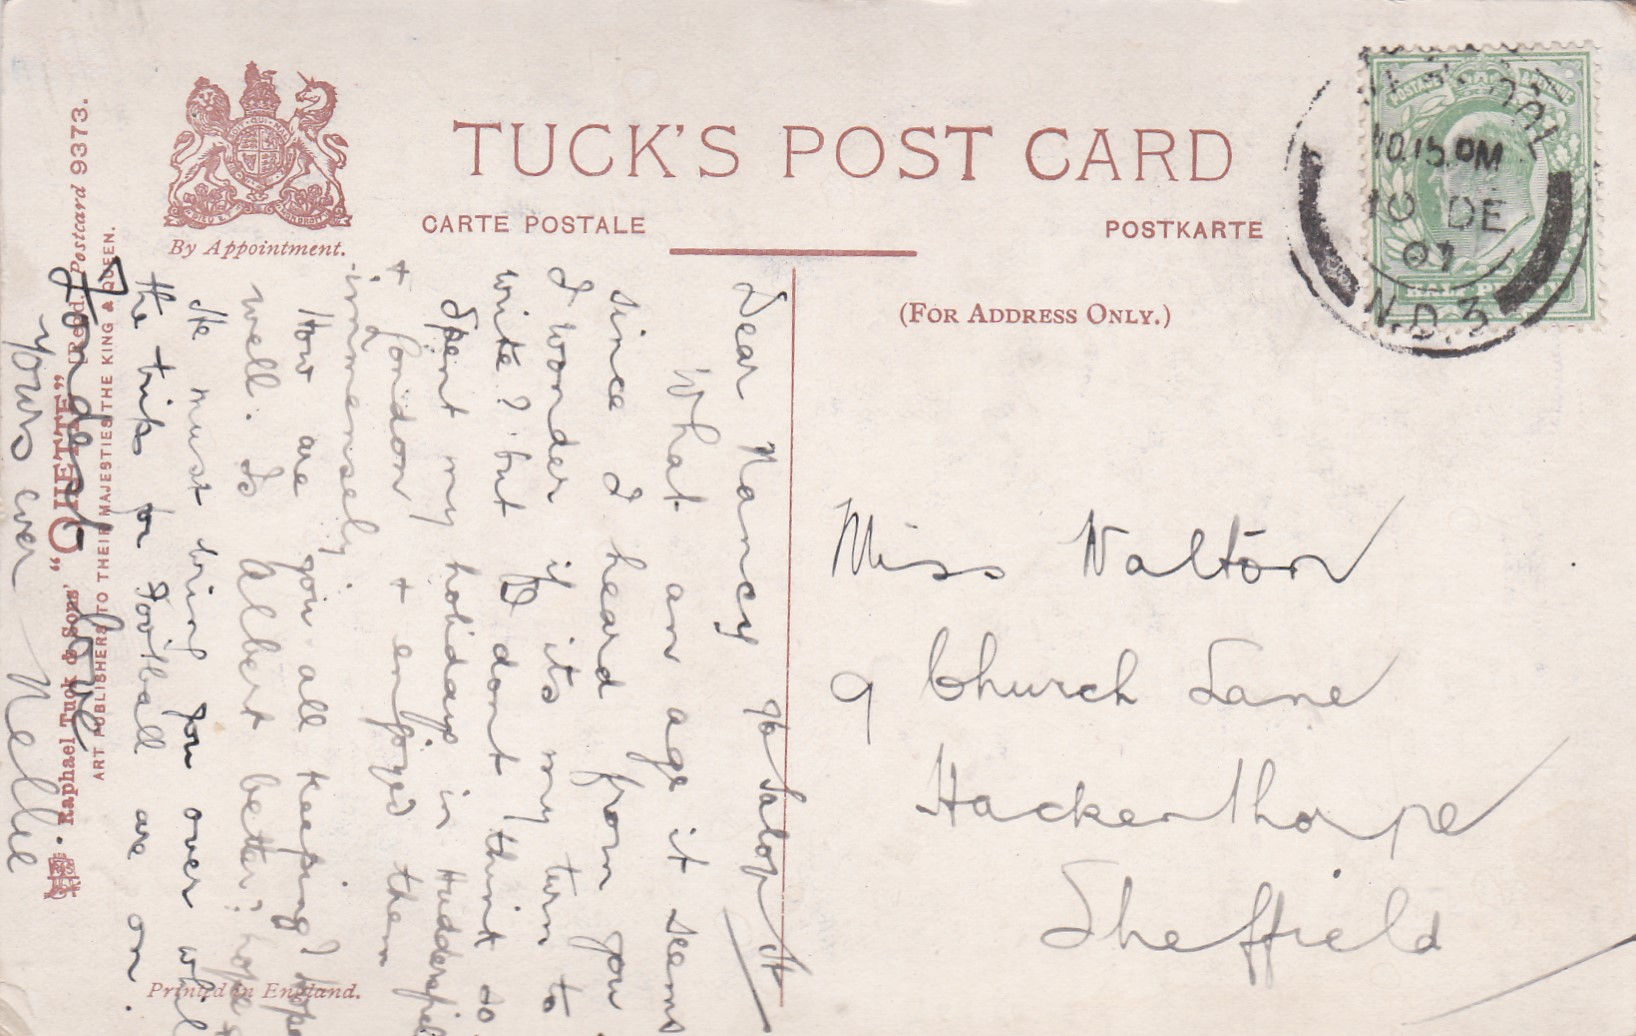 TUCK'S POST CARD
CARTE POSTALE
POSTKARTE
By Appointment.
(FOR ADDRESS ONLY.)
POSTAGE
HALF PENNY
10.15 PM
10 DE
07
N.D.3
Miss Walton
9 Church Lane
Hackenthorpe
Sheffield
96 Salop St
Dear Nancy
What an age it seems
since I heard from you
I wonder if its my turn to
write? but I dont think so
Spent my holidays in
+ London + enjoyed them
immensely
How are you all keeping? hope
well. Is Albert better? hope
He must bring you over
the trips for Football are on.
Fondest love
yours ever Nellie
Raphael Tuck & Sons' "OILETTE" [Regd.] Postcard 9373.
ART PUBLISHERS TO THEIR MAJESTIES THE KING & QUEEN.
Printed in England.